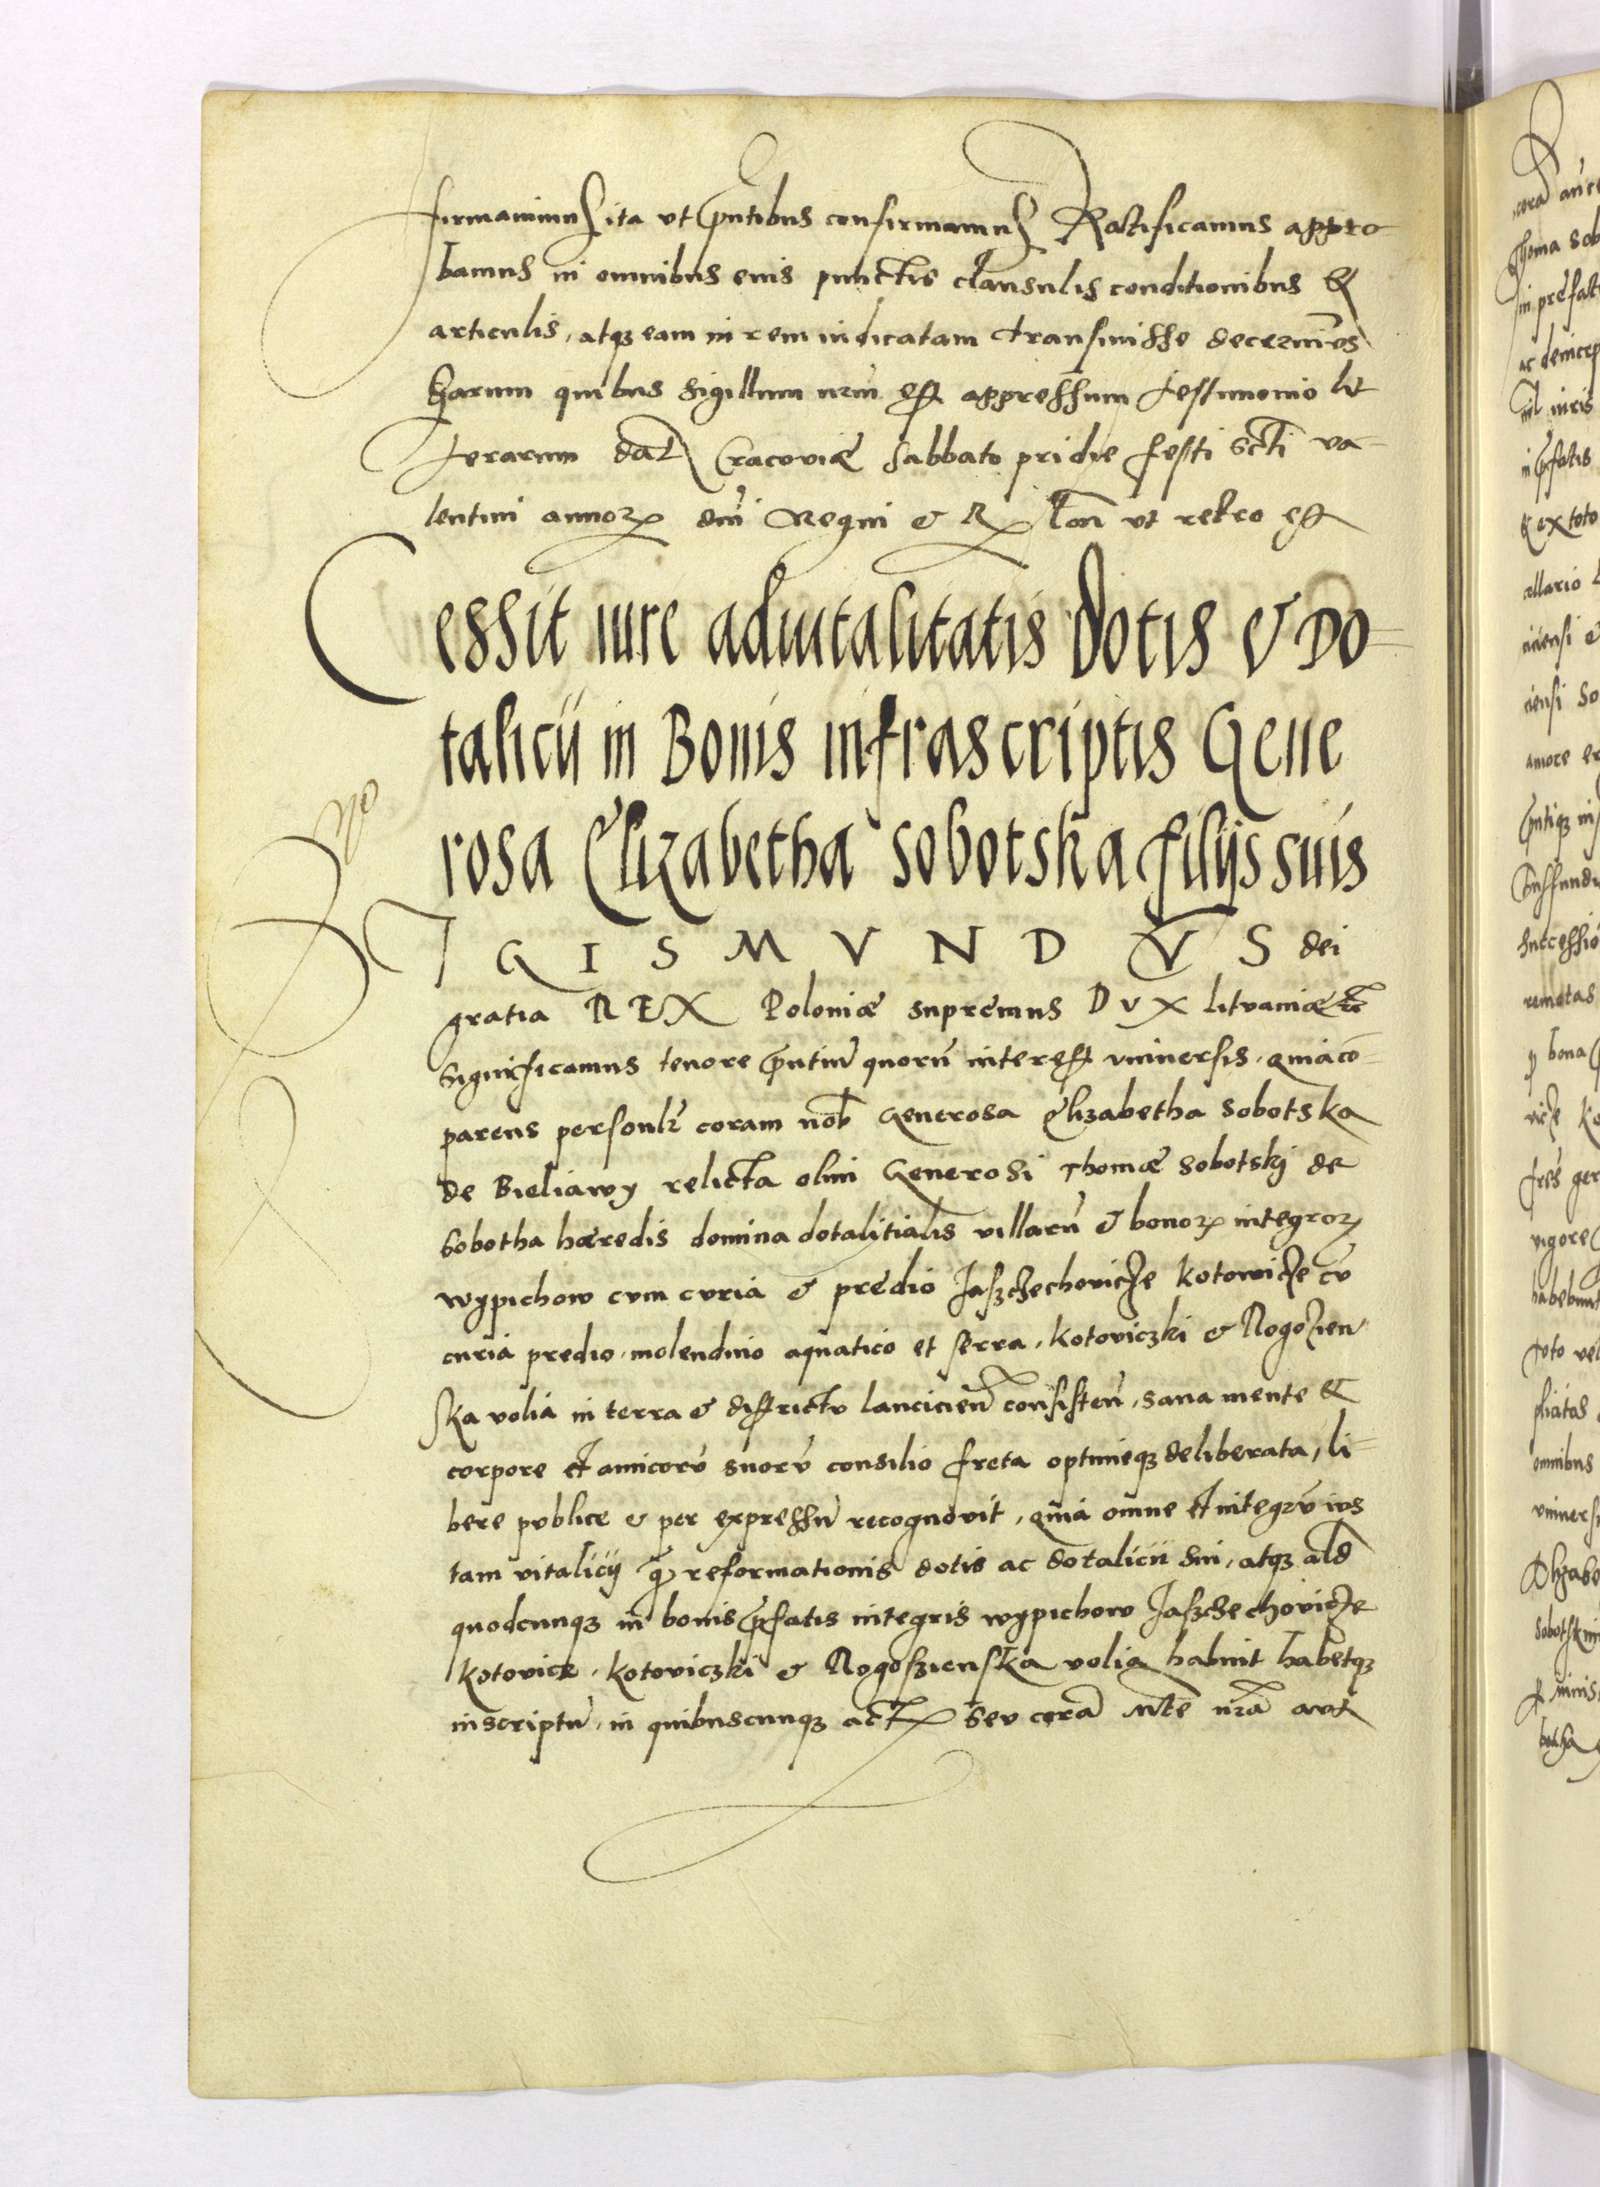 firmavimus ita vt pntibus confirmamus Ratificamus appro-
bamus in omnibus euis punctis clausulis conditionibus &
articulis, atqz eam in rem iudicatam transiuisse decernim̄us
harum quibus sigillum nrūm est appressum testimonio lit
terarum dat Cracoviæ sabbato pridie festi Scti va-
lentini annoꝝ dni Regni & ut retro est
Cessit iure aduitalitatis Dotis & Do=
talicij in Bonis infrascriptis Gene
rosa Elizabetha Sobotska filijs suis
IGISMVNDVS dei
gratia REX Poloniæ supremus DVX Litvaniæ etc
Significamus tenore pn̄tium quorū interest vniversis, quia co-
parens personlr coram nob Generosa Elizabetha Sobotska
De Bieliawy relicta olim Generosi Thomæ Sobotskj de
Sobotha hæredis domina dotalitialis villarū & bonoꝝ integroꝝ
wypichow cvm cvria & prędio Jaszchechovicze Kotowicze cū
curia predio, molendino aquatico et serra, Kotoviczki & Rogozien
ska volia in terra & districtv lancicien̄ consisteñ, sana mente &
corpore et amicorū suorū consilio freta optimeqz deliberata, li-
bere pvblice & per expressū recognovit, quia omne et integrū ivs
tam vitalicij q̄ reformationis dotis ac dotalicii sui, atqz aliđ
quodcunqz in bonis p̄fatis integris wypichow Jaszchechovicze
Kotovice, Kotoviczki & Rogoszienska volia habuit habetqz
inscriptū, in quibuscunqz actꝝ sev corā Mte nrā avt